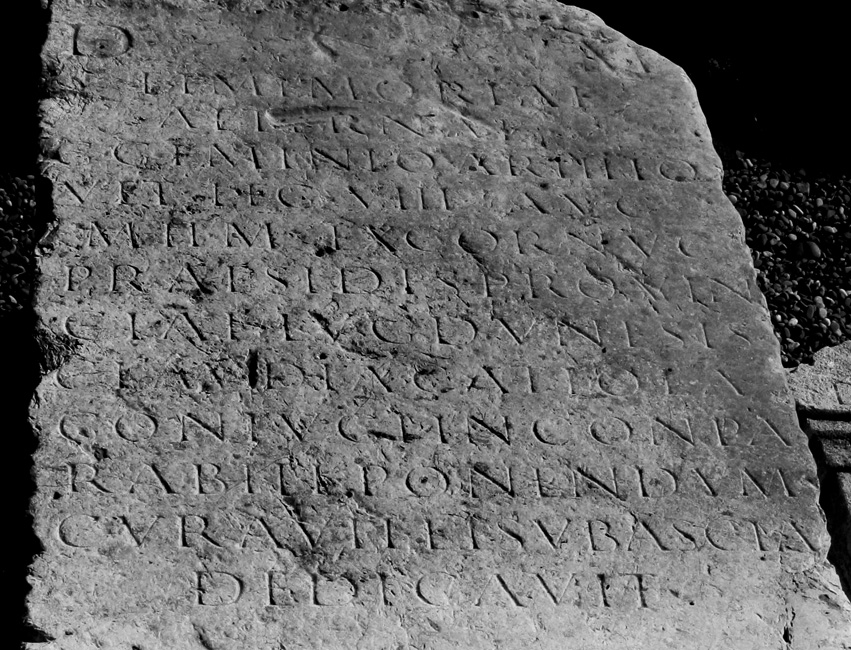 D M
ET MEMORIAE
AETERNAE
GEMINIO ARTILIO
VET LEG VIII AVG
M H M EX CORN VC
PRAESIDIS PROVIN
CIAE LVGDVNESIS
CLAVDIA CALLOPA
CONIVGI INCONPA
RABILI PONENDVM
CVRAVIT ET SVB ASCIA
DEDICAVIT